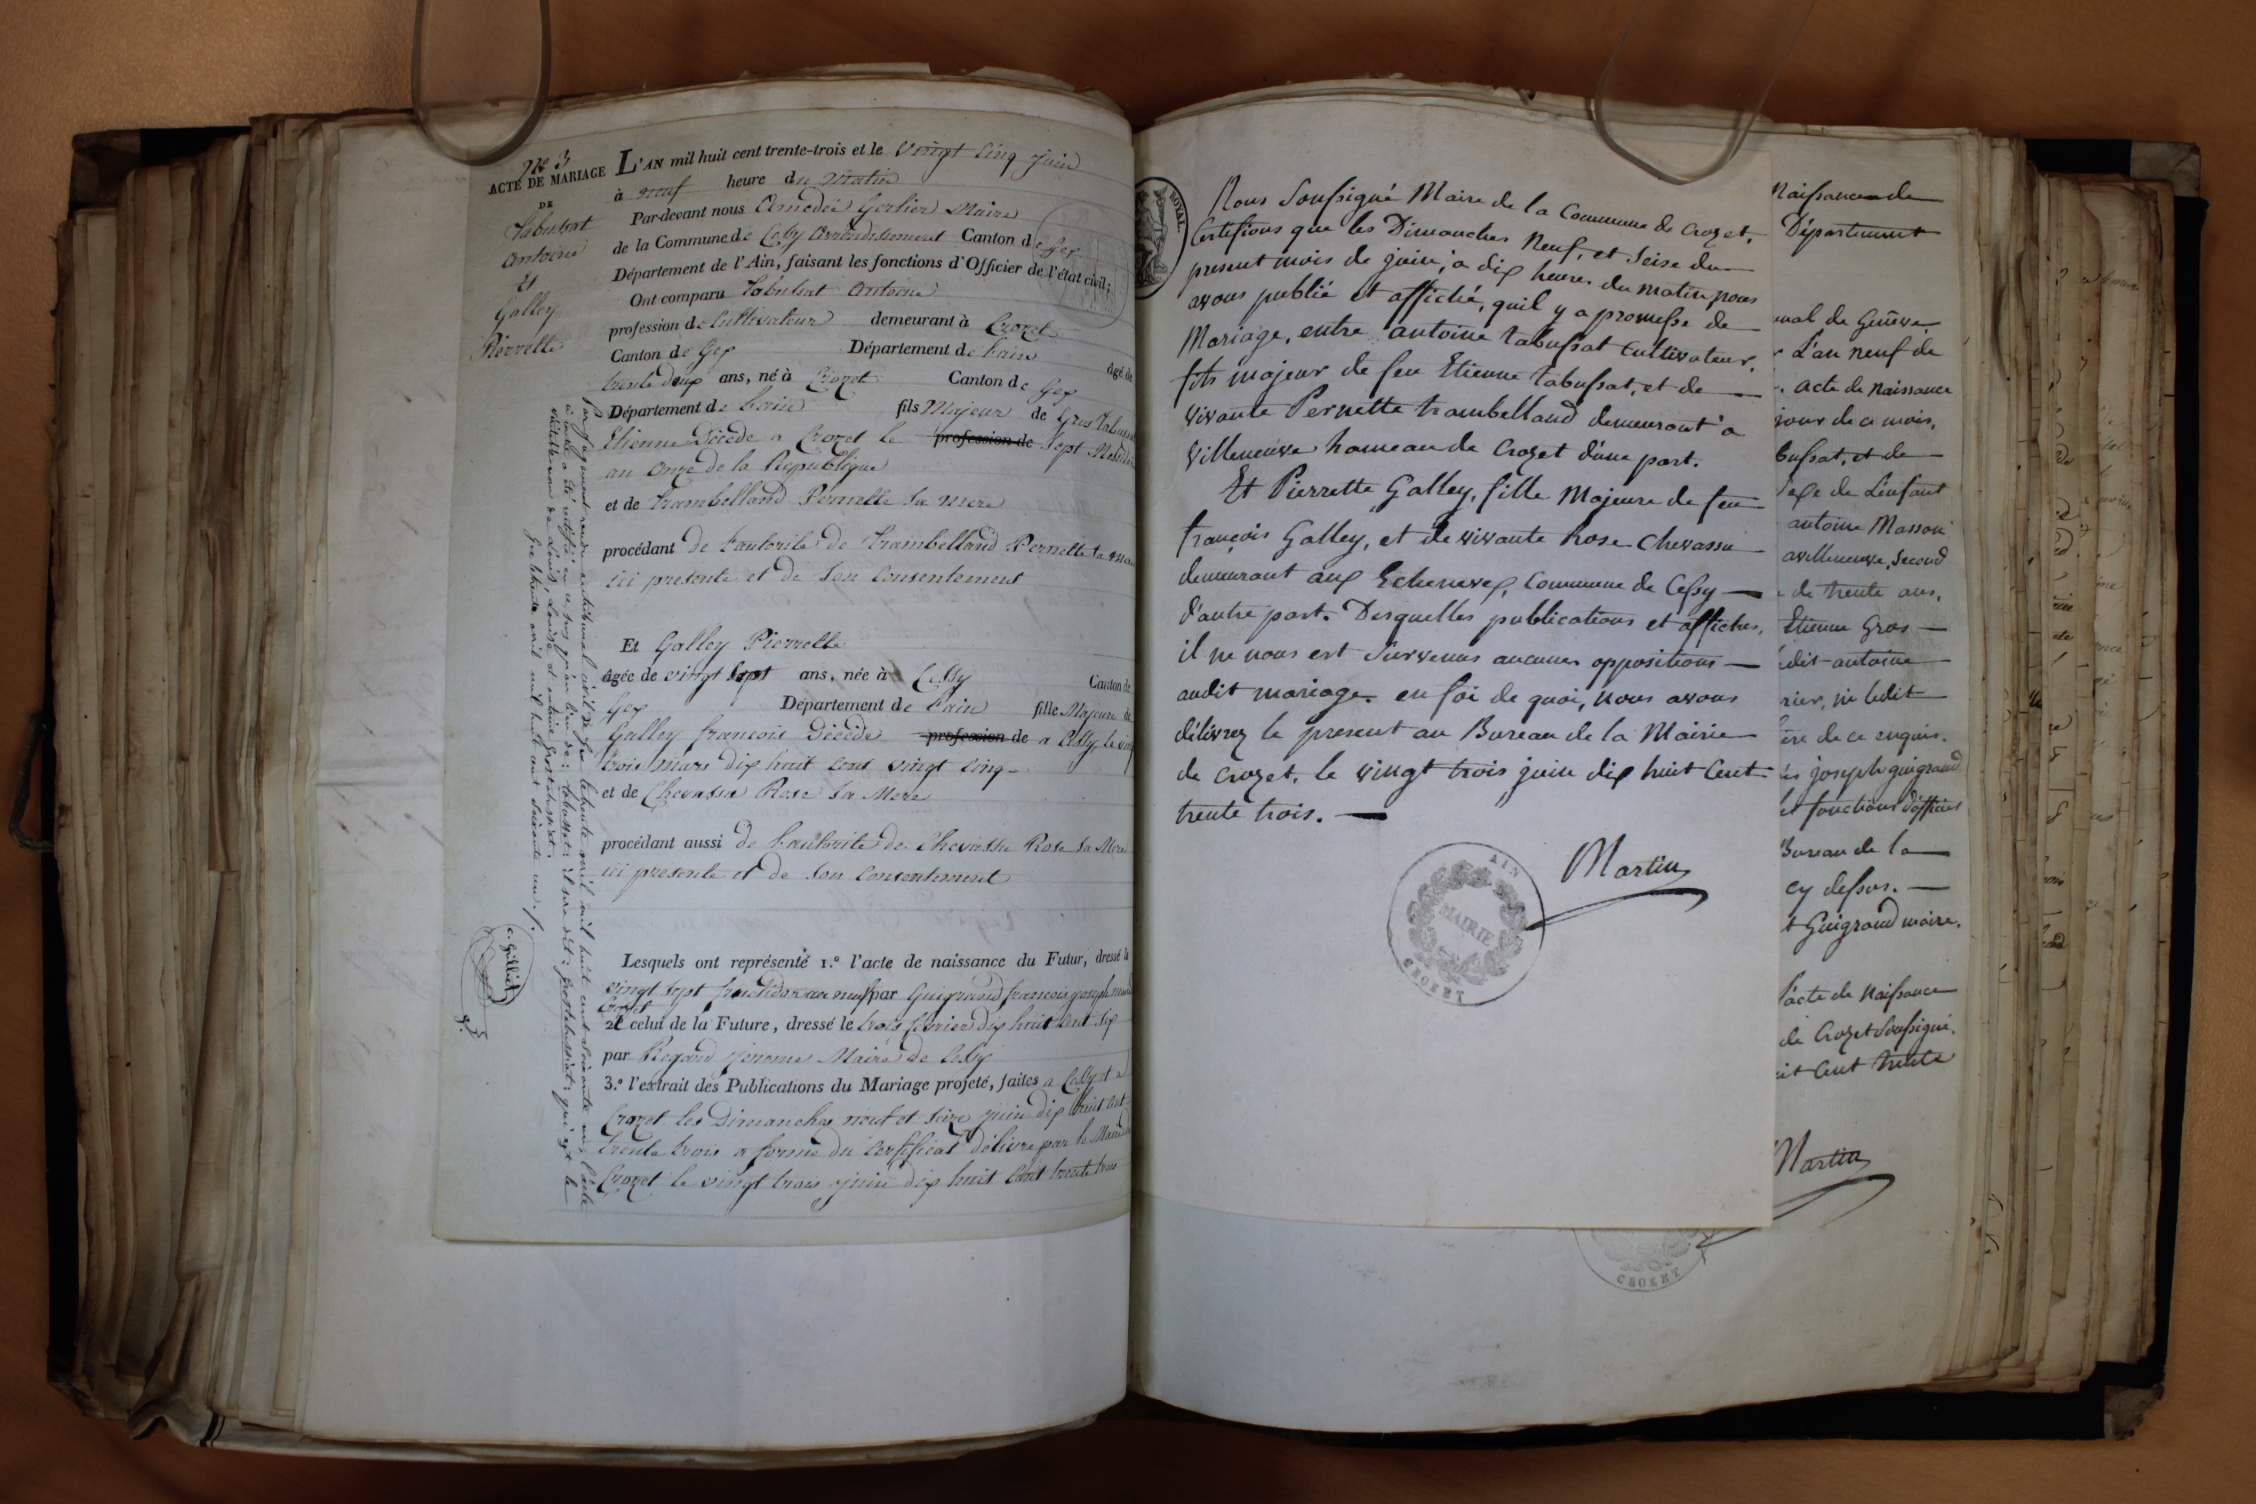 No 3
ACTE DE MARIAGE
DE
Tabussat
Antoine
Et
Galley
Pierrette
L'AN mil huit cent trente-trois et le vingt cinq juin
à neuf heure du Matin
Par-devant nous Amédée Gerlier Maire
de la Commune de Cessy Arrondissement Canton de Gex
Département de l'Ain, faisant les fonctions d'Officier de l'état civil;
Ont comparu Tabussat Antoine
profession de Cultivateur demeurant à Crozet
Canton de Gex Département de L'ain âgé de
trente deux ans, né à Crozet Canton de Gex
Département de L'ain fils Majeur de Gros Tabussat
Etienne Décédé a Crozet le profession de Sept Messidor
an Onze de la République
et de Trambelland Pernette Sa mere
procédant de L'autorité de Trambelland Pernette Sa mere
ici presente et de Son Consentement
Et Galley Pierrette
âgée de vingt Sept ans, née à Cessy Canton de
Gex Département de L'ain fille Majeure de
Galley françois Décédé profession de a Cessy le vingt
trois Mars dix huit Cent vingt Cinq
et de Chevassu Rose Sa Mere
procédant aussi de L'autorité de Chevassu Rose Sa Mere
ici presente et de Son Consentement
Lesquels ont représenté 1.º l'acte de naissance du Futur, dressé le
vingt Sept fructidor an neuf par Guigrand françois joseph Maire
Crozet
2º celui de la Future, dressé le trois fevrier dix huit Cent Six
par Regard jerome Maire de Cessy
3.º l'extrait des Publications du Mariage projeté, faites a Cessy et a
Crozet les Dimanches neuf et Seize juin dix huit Cent
trente trois a forme du Certificat délivré par le Maire de
Crozet le vingt trois juin dix huit Cent trente trois
Par jugement rendu au tribunal civil de Gex le trente avril mil huit cent soixante un, l'acte
ci contre a été rectifié en ce sens qu'au lieu de: tabussat: il sera dit: Grostabussiat: qui est le
Gex le trente avril mil huit cent soixante un.
C. Gilliet
g.
ROYAL.
Nous Soussigné Maire de la Commune de Crozet,
Certifions que les Dimanches Neuf, et Seise du
present mois de juin, a dix heures du matin nous
avons publié et affiché, quil y a promesse de
Mariage, entre antoine tabussat Cultivateur,
fils majeur de feu Etienne tabussat, et de
vivante Pernette trambelland demeurant à
Villeneuve hameau de Crozet d'une part.
Et Pierrette Galley, fille Majeure de feu
françois Galley, et de vivante Rose Chevassu
demeurant aux Echenevex, Commune de Cessy
d'autre part. Desquelles publications et affiches,
il ne nous est Survenus aucunes oppositions
audit mariage. en foi de quoi, nous avons
délivrez le present au Bureau de la Mairie
de Crozet, le vingt trois juin dix huit Cent
trente trois.
Martin
AIN
MAIRIE
CROZET
Naissance de
Département
de Genève,
L'an neuf de
acte de naissance
jour de ce mois,
et de
Sexe de L'enfant
antoine Masson
avilleneuve, Second
de trente ans,
Etienne Gros
dit antoine
ni ledit
de ce enquis.
joseph guigrand
fonctions d'officier
Bureau de la
cy dessus.
Guigrand maire.
l'acte de Naissance
de Crozet Soussigné,
Cent trente
Martin
CROZET